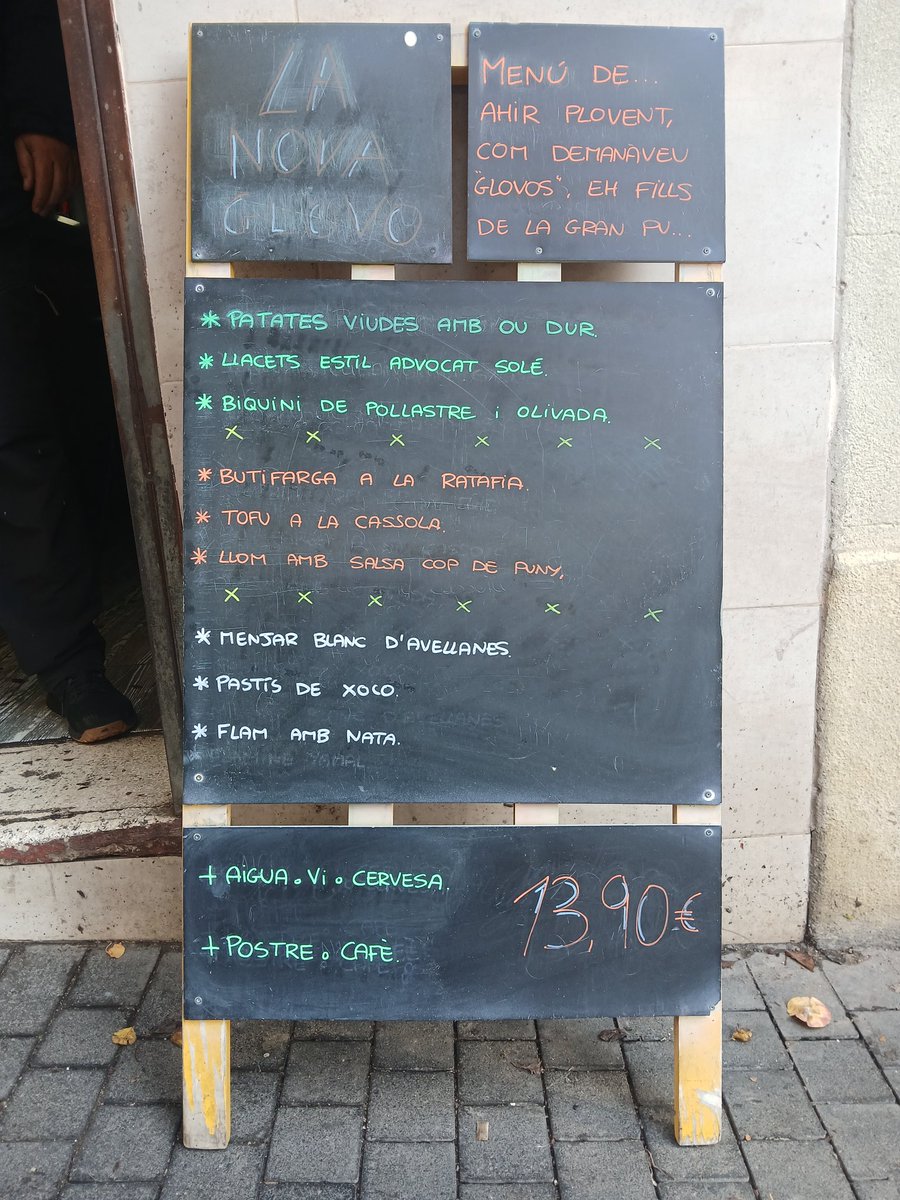 LA
NOVA
GLOVO
MENÚ DE...
AHIR PLOVENT,
COM DEMANÀVEU
"GLOVOS", EH FILLS
DE LA GRAN PU...
* PATATES VIUDES AMB OU DUR.
* LLACETS ESTIL ADVOCAT SOLÉ.
* BIQUINI DE POLLASTRE i OLIVADA.
x x x x x x
* BUTIFARGA A LA RATAFÍA.
* TOFU A LA CASSOLA.
* LLOM AMB SALSA COP DE PUNY.
x x x x x x
* MENJAR BLANC D'AVELLANES.
* PASTÍS DE XOCO.
* FLAM AMB NATA.
+ AIGUA o Vi o CERVESA.
13,90€
+ POSTRE o CAFÈ.